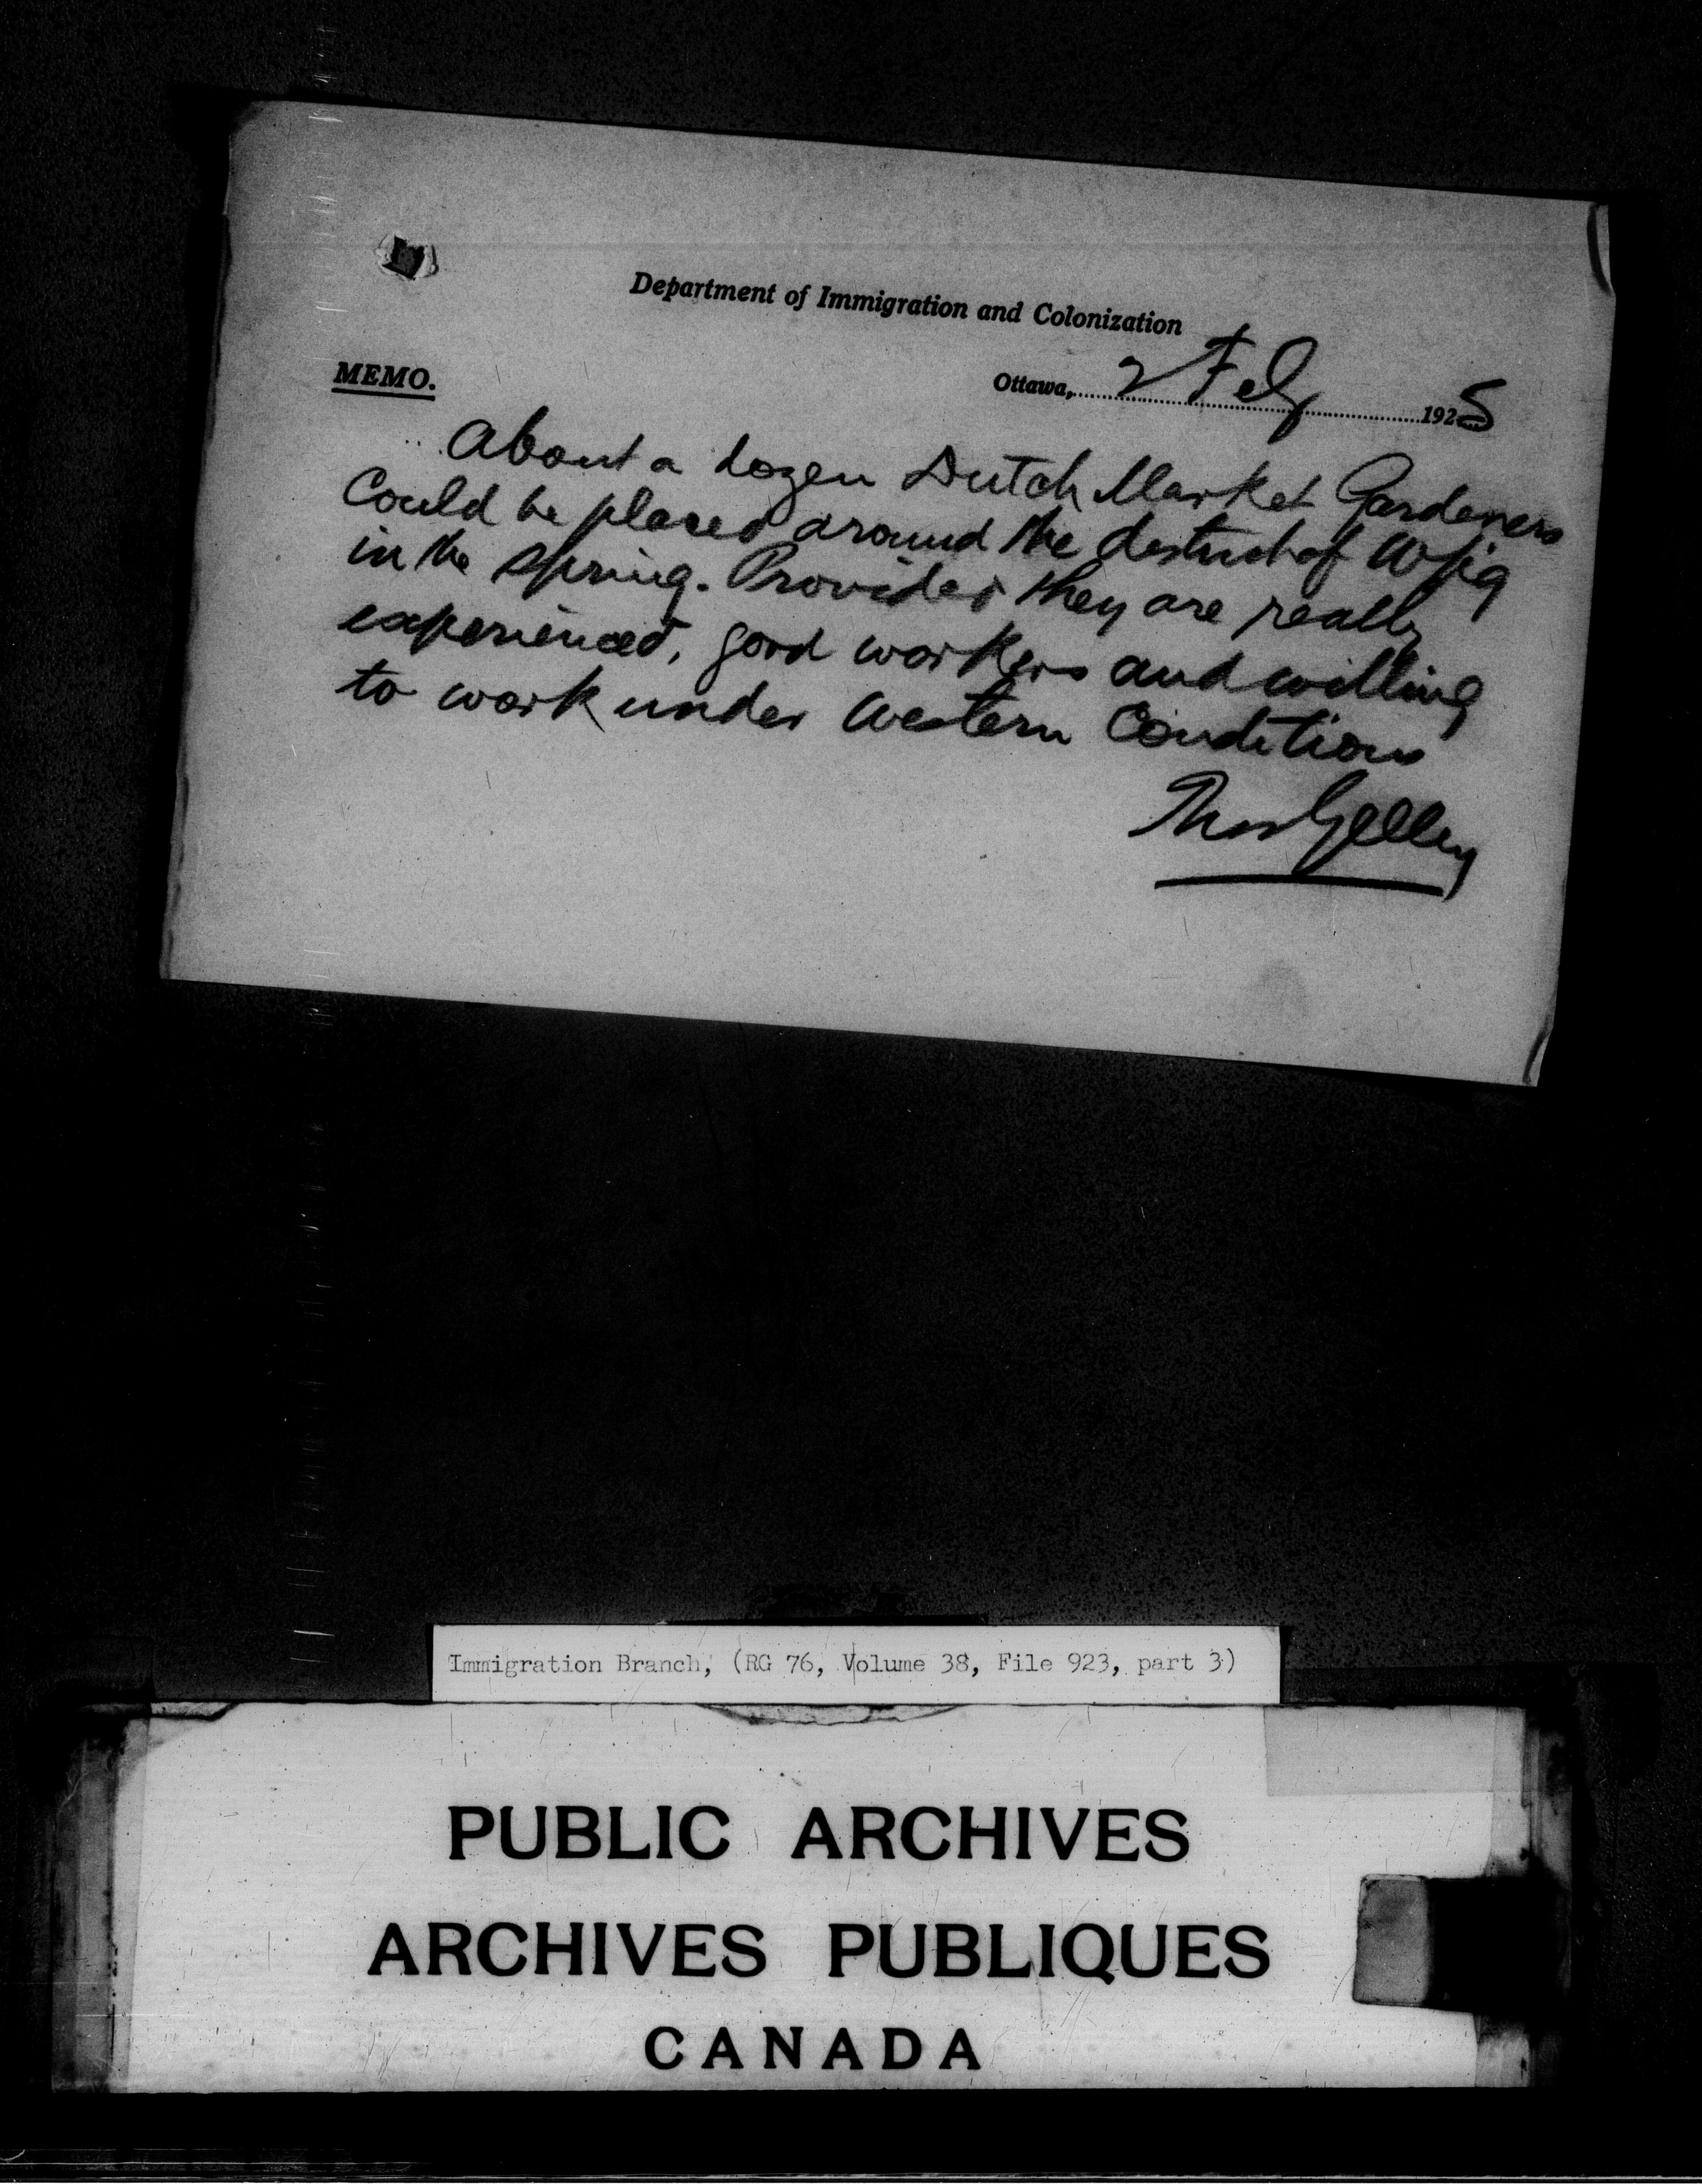 Department of Immigration and Colonization
MEMO.
Ottawa, 2 Feby 1925
About a dozen Dutch Market Gardeners
Could be placed around the district of Wpig
in the Spring. Provided they are really
experienced, good workers and willing
to work under Western Conditions
Thos Gelley
Immigration Branch, (RG 76, Volume 38, File 923, part 3)
PUBLIC ARCHIVES
ARCHIVES PUBLIQUES
CANADA